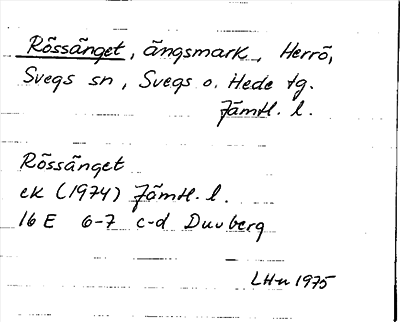 Rössänget, ängsmark, Herrö,
Svegs sn, Svegs o. Hede tg.
Jämtl. l.
Rössänget
ek (1974) Jämtl. l.
16 E 6-7 c-d Duvberg
LHn 1975